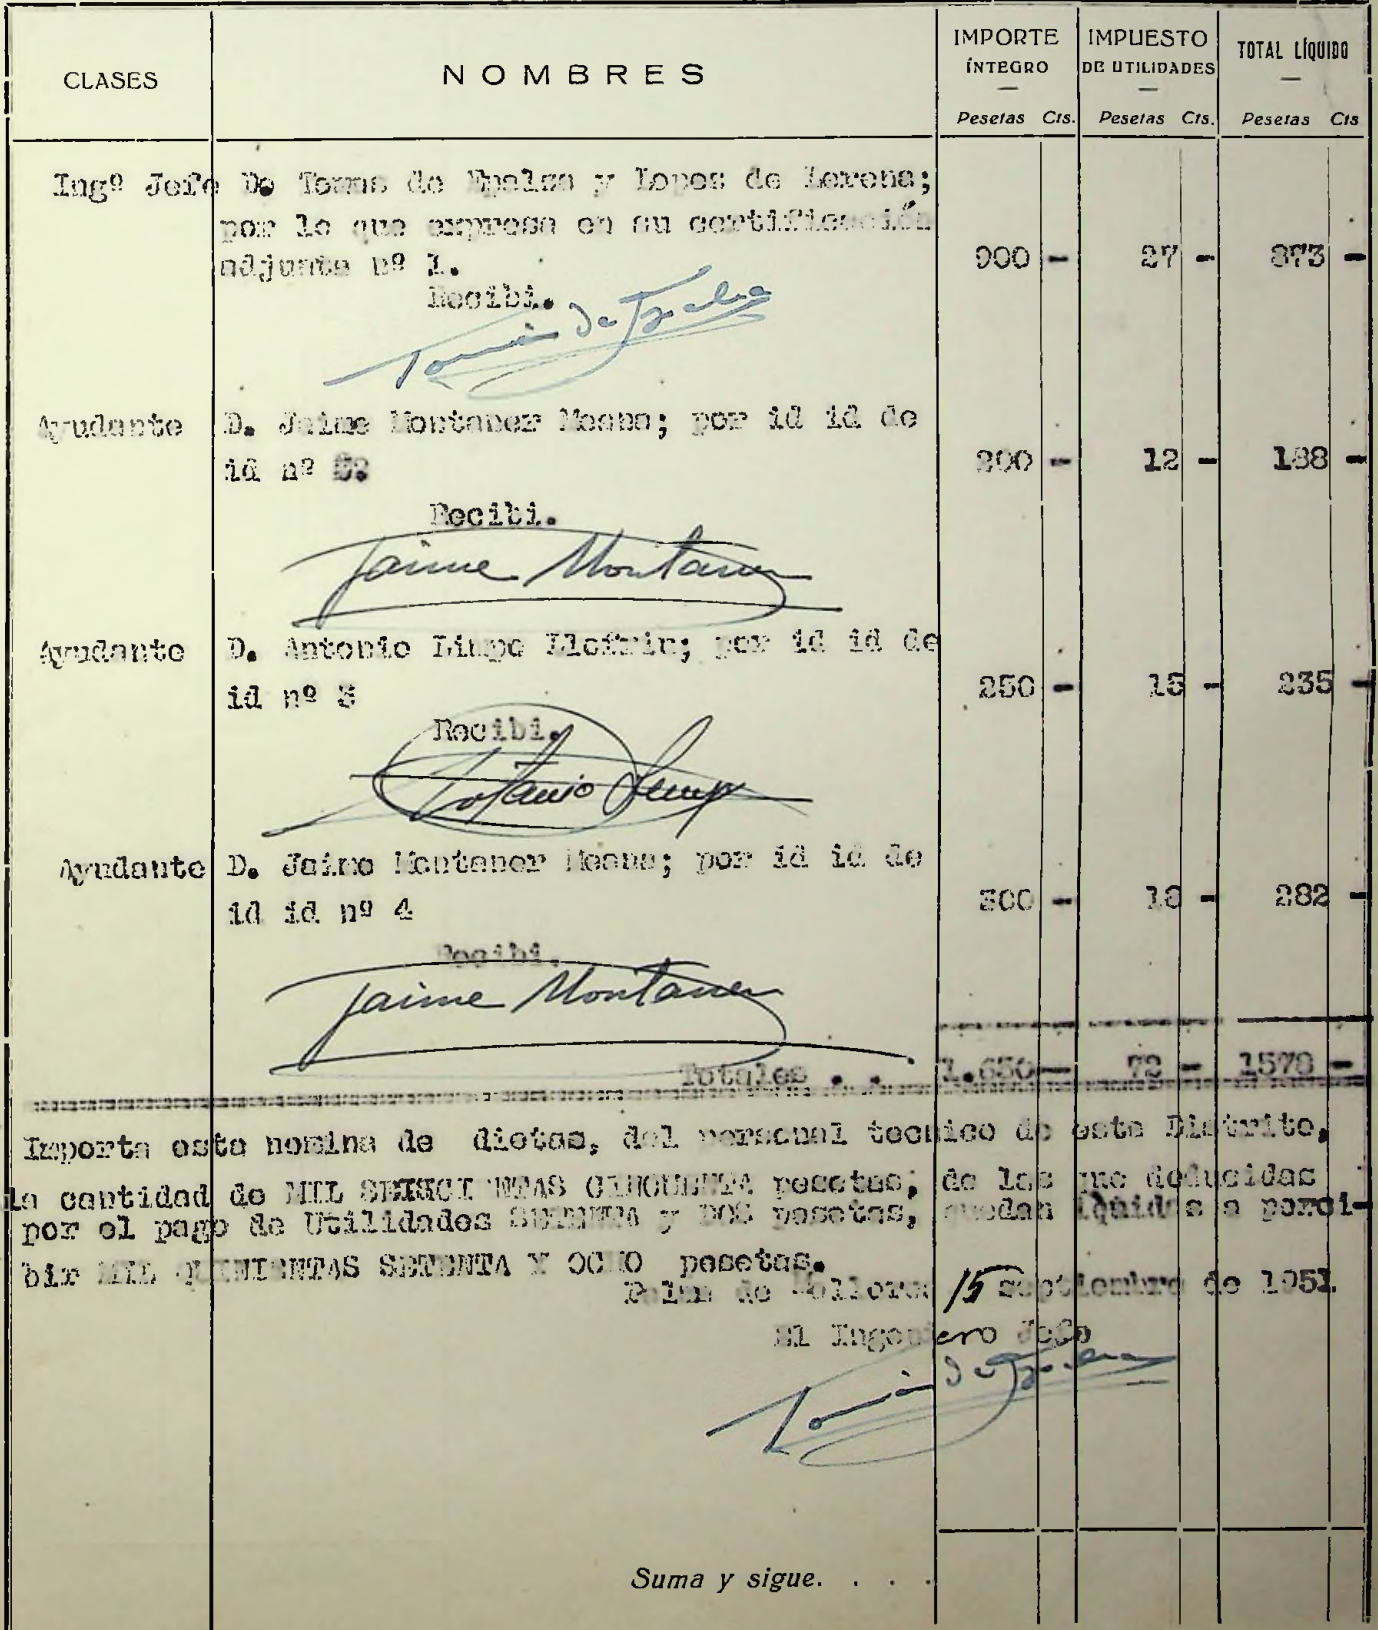 CLASES NOMBRES IMPORTE ÍNTEGRO IMPUESTO DE UTILIDADES TOTAL LÍQUIDO
Pesetas Cts. Pesetas Cts. Pesetas Cts
Ingº Jefe D. Tomas de y Lopes de Lerena;
por lo que expresa en su certificación
adjunta nº 1. 900 - 27 - 873 -
Recibi.
Ayudante D. Jaime Montaner Means; por id id de
id nº 200 - 12 - 188 -
Recibi.
Jaime Montaner
Ayudante D. Antonio Limpo por id id de
id nº 3 250 - 15 - 235 -
Recibi.
Antonio Limpo
Ayudante D. Jaime Montaner Means; por id id de
id id nº 4 300 - 18 - 282 -
Recibi.
Jaime Montaner
Totales . . 1.650 - 72 - 1578 -
Importa esta nomina de dietas, del personal tecnico de este Distrito,
la cantidad de MIL SEISCIENTAS CINCUENTA pesetas; de las que deducidas
por el pago de Utilidades SETENTA y DOS pesetas, quedan lquidas a perci-
bir MIL QUINIENTAS SETENTA Y OCHO pesetas.
Palma de Mallorca 15 septiembre de 1951
El Ingeniero Jefe
Suma y sigue. . . .